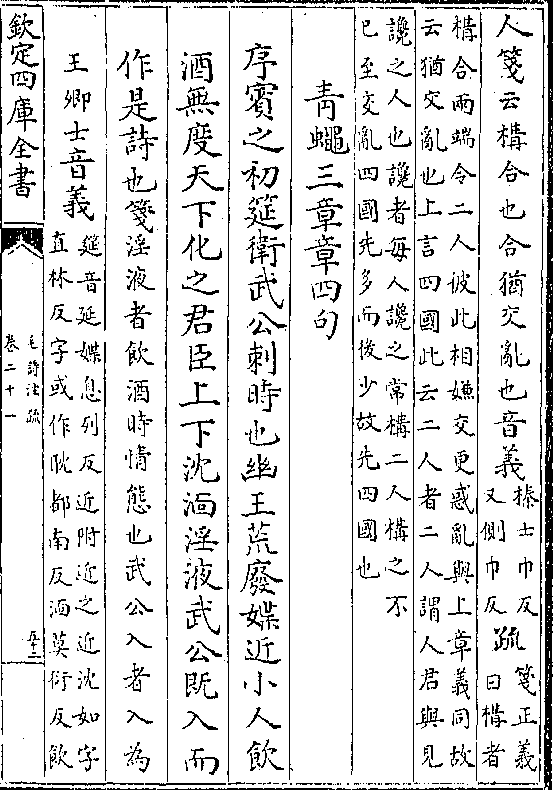 人箋云構合也合猶交亂也音義榛士巾反又側巾反疏箋正義曰構者
構合兩端令二人彼此相嫌交更惑亂與上章義同故
云猶交亂也上言四國此云二人者二人謂人君與見
讒之人也讒者每人讒之常構二人構之不
已至交亂四國先多而後少故先四國也
青蠅三章章四句
序賓之初筵衛武公刺時也幽王荒廢媟近小人飲
酒無度天下化之君臣上下沈湎淫液武公既入而
作是詩也箋淫液者飲酒時情態也武公入者入為
王卿士音義筵音延媟息列反近附近之近沈如字
直林反字或作耽都南反湎莫衍反飲
欽定四庫全書
毛詩注疏
卷二十一
五十二